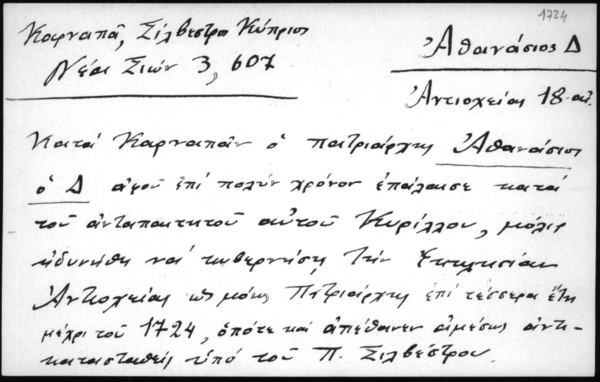 1724
Καρναπᾶ, Σίλβεστρος Κύπριος
Νέα Σιών 3, 607
Ἀθανάσιος Δ
Ἀντιοχείας 18 αἰ.
Κατά Καρναπᾶν ὁ πατριάρχης Ἀθανάσιος
ὁ Δ ἀφοῦ ἐπί πολύν χρόνον ἐπάλαισε κατά
τοῦ ἀνταπαιτητοῦ αὐτοῦ Κυρίλλου, μόλις
ἠδυνήθη νά κυβερνήση τήν Ἐκκλησίαν
Ἀντιοχείας ὡς μόνος Πατριάρχης ἐπί τέσσερα ἔτη
μέχρι τοῦ 1724, ὁπότε καί ἀπέθανεν ἀμέσως ἀντι-
κατασταθείς ὑπό τοῦ Π. Σιλβέστρου.